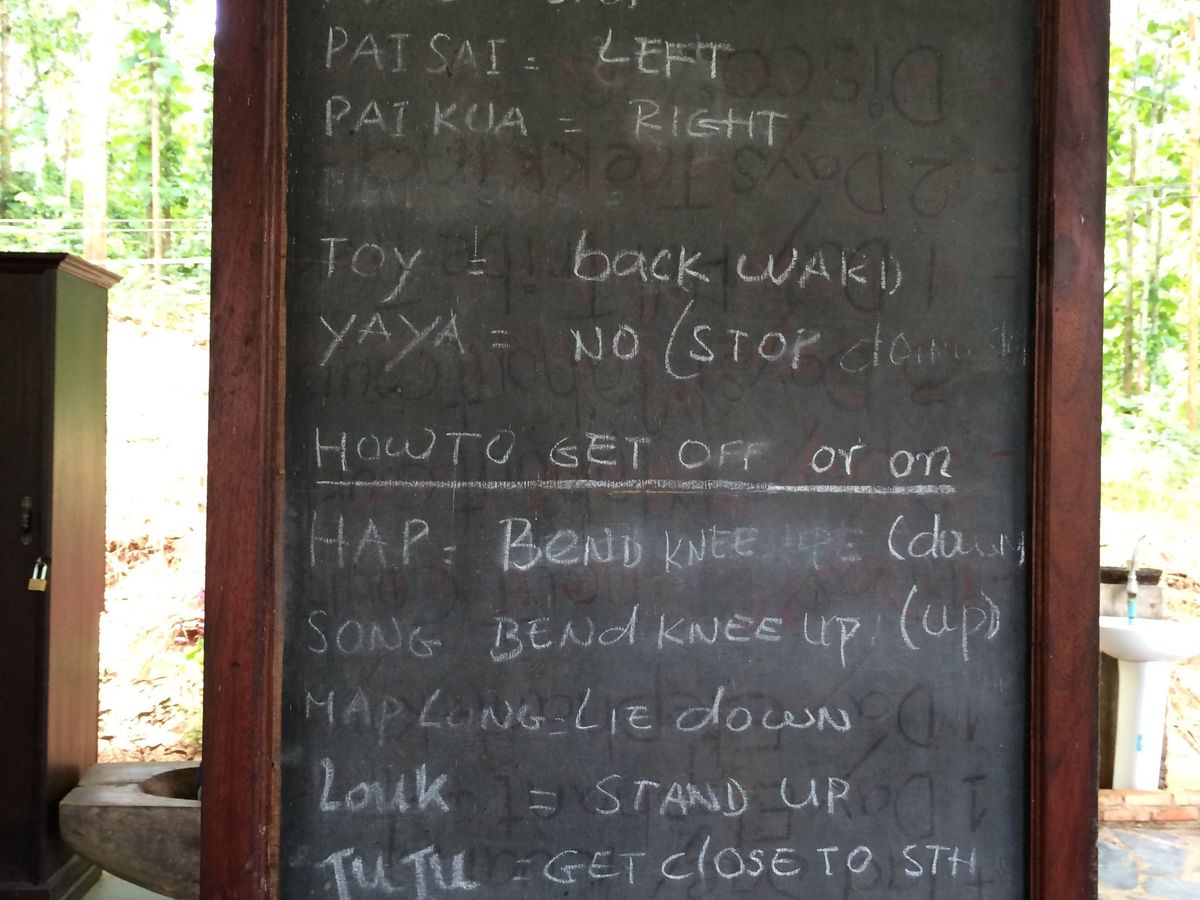 PAI SAI = LEFT
PAI KUA = RIGHT
TOY = back WARD
YAYA = NO (STOP
HOW TO GET OFF or on
HAP = BEND KNEE (down
SONG BENd KNEE up (up)
MAP LONG = LIE down
Louk = STAND UP
TUTU = GET close TO STH